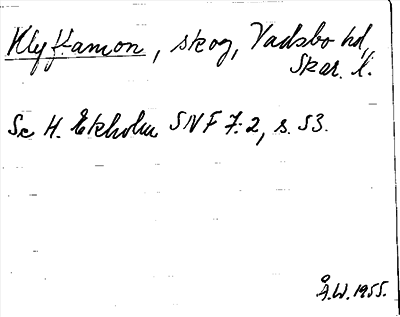 Klyftamon, skog, Vadsbo hd,
Skar. l.
Se H. Ekholm SNF 7:2, s. 53.
Å.W. 1955.